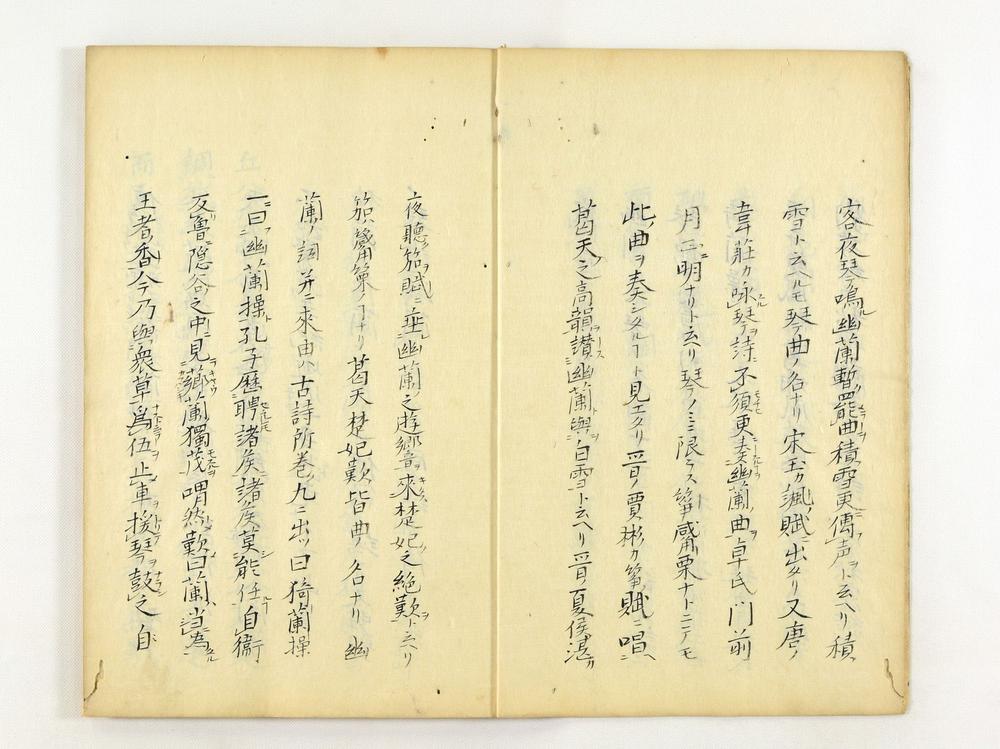 客夜琴鳴幽蘭暫罷曲積雪更傳声ト云ヘリ積
雪ト云ヘルモ琴曲ノ名ナリ宋玉カ諷賦ニ出タリ又唐ノ
韋莊カ咏琴詩ニ不須更奏幽蘭曲卓氏門前
月正明ナリト云リ琴ノミニ限ラス箏觱栗ナトニテモ
此曲ヲ奏シタルヿト見エタリ晋ノ賈彬カ箏賦ニ唱
葛天之高韻讃幽蘭與白雪ト云ヘリ晋夏侯湛カ
夜聽笳賦ニ垂幽蘭之遊響來楚妃之絶歎ト云ヘリ
笳ハ觱篥ノヿナリ葛天楚妃歎皆曲ノ名ナリ幽
蘭ノ詞并ニ來由ハ古詩所巻ノ九ニ出ツ曰猗蘭操
一曰幽蘭操孔子歴聘諸侯諸侯莫能任自衞
反魯隠谷之中見薌蘭獨茂喟然歎曰蘭當為
王者香今乃與衆草爲伍止車援琴鼓之自